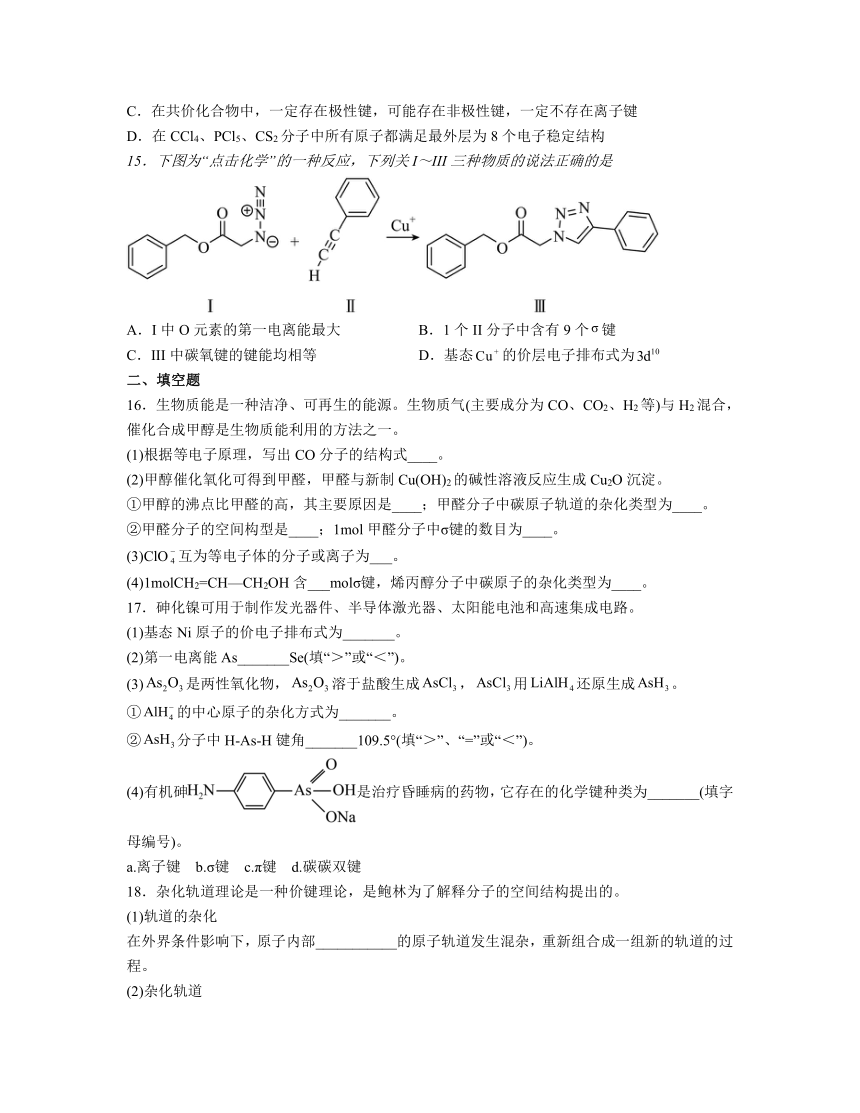 C．在共价化合物中，一定存在极性键，可能存在非极性键，一定不存在离子键
D．在 CCl4、PCl5、CS2 分子中所有原子都满足最外层为 8 个电子稳定结构
15．下图为“点击化学”的一种反应，下列关 I～III 三种物质的说法正确的是
N
N
N
O
O
+
C
C
H
Cu+
O
O
N
N
N
Ⅰ Ⅱ Ⅲ
A．I 中 O 元素的第一电离能最大 B．1 个 II 分子中含有 9 个 σ 键
C．III 中碳氧键的键能均相等 D．基态 Cu⁺ 的价层电子排布式为 3d¹⁰
二、填空题
16．生物质能是一种洁净、可再生的能源。生物质气(主要成分为 CO、CO2、H2 等)与 H2 混合，
催化合成甲醇是生物质能利用的方法之一。
(1)根据等电子原理，写出 CO 分子的结构式____。
(2)甲醇催化氧化可得到甲醛，甲醛与新制 Cu(OH)2 的碱性溶液反应生成 Cu2O 沉淀。
①甲醇的沸点比甲醛的高，其主要原因是____；甲醛分子中碳原子轨道的杂化类型为____。
②甲醛分子的空间构型是____；1mol 甲醛分子中σ键的数目为____。
(3)ClO₄⁻ 互为等电子体的分子或离子为___。
(4)1molCH2=CH—CH2OH 含___molσ键，烯丙醇分子中碳原子的杂化类型为____。
17．砷化镍可用于制作发光器件、半导体激光器、太阳能电池和高速集成电路。
(1)基态 Ni 原子的价电子排布式为_______。
(2)第一电离能 As_______Se(填“＞”或“＜”)。
(3) As₂O₃ 是两性氧化物， As₂O₃ 溶于盐酸生成 AsCl₃ ， AsCl₃ 用 LiAlH₄ 还原生成 AsH₃ 。
① AlH₄⁻ 的中心原子的杂化方式为_______。
② AsH₃ 分子中 H-As-H 键角_______109.5°(填“＞”、“=”或“＜”)。
(4)有机砷H₂N As O OH ONa 是治疗昏睡病的药物，它存在的化学键种类为_______(填字
母编号)。
a.离子键 b.σ键 c.π键 d.碳碳双键
18．杂化轨道理论是一种价键理论，是鲍林为了解释分子的空间结构提出的。
(1)轨道的杂化
在外界条件影响下，原子内部___________的原子轨道发生混杂，重新组合成一组新的轨道的过
程。
(2)杂化轨道